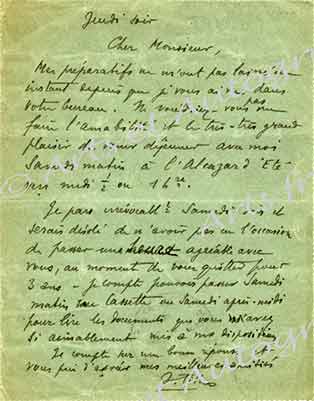 Jeudi soir
Cher Monsieur,
Mes préparatifs ne m'ont pas laissé un
instant depuis que je vous ai vu dans
votre bureau. Ne voudriez vous pas
faire l'amabilité et le très-très grand
plaisir de venir déjeuner avec moi
Samedi matin à l'Alcazar d'Eté
vers midi ½ ou 1h
Je pars Samedi soir et
serais désolé de n'avoir pas eu l'occasion
de passer une heure agréable avec
vous, au moment de vous quitter pour
3 ans - je compte pouvoir passer Samedi
matin ou Samedi après-midi
pour lire les documents que vous m'avez
si aimablement mis à ma disposition
Je compte sur un bonne réponse et
vous prie d'agréer mes meilleures amitiés